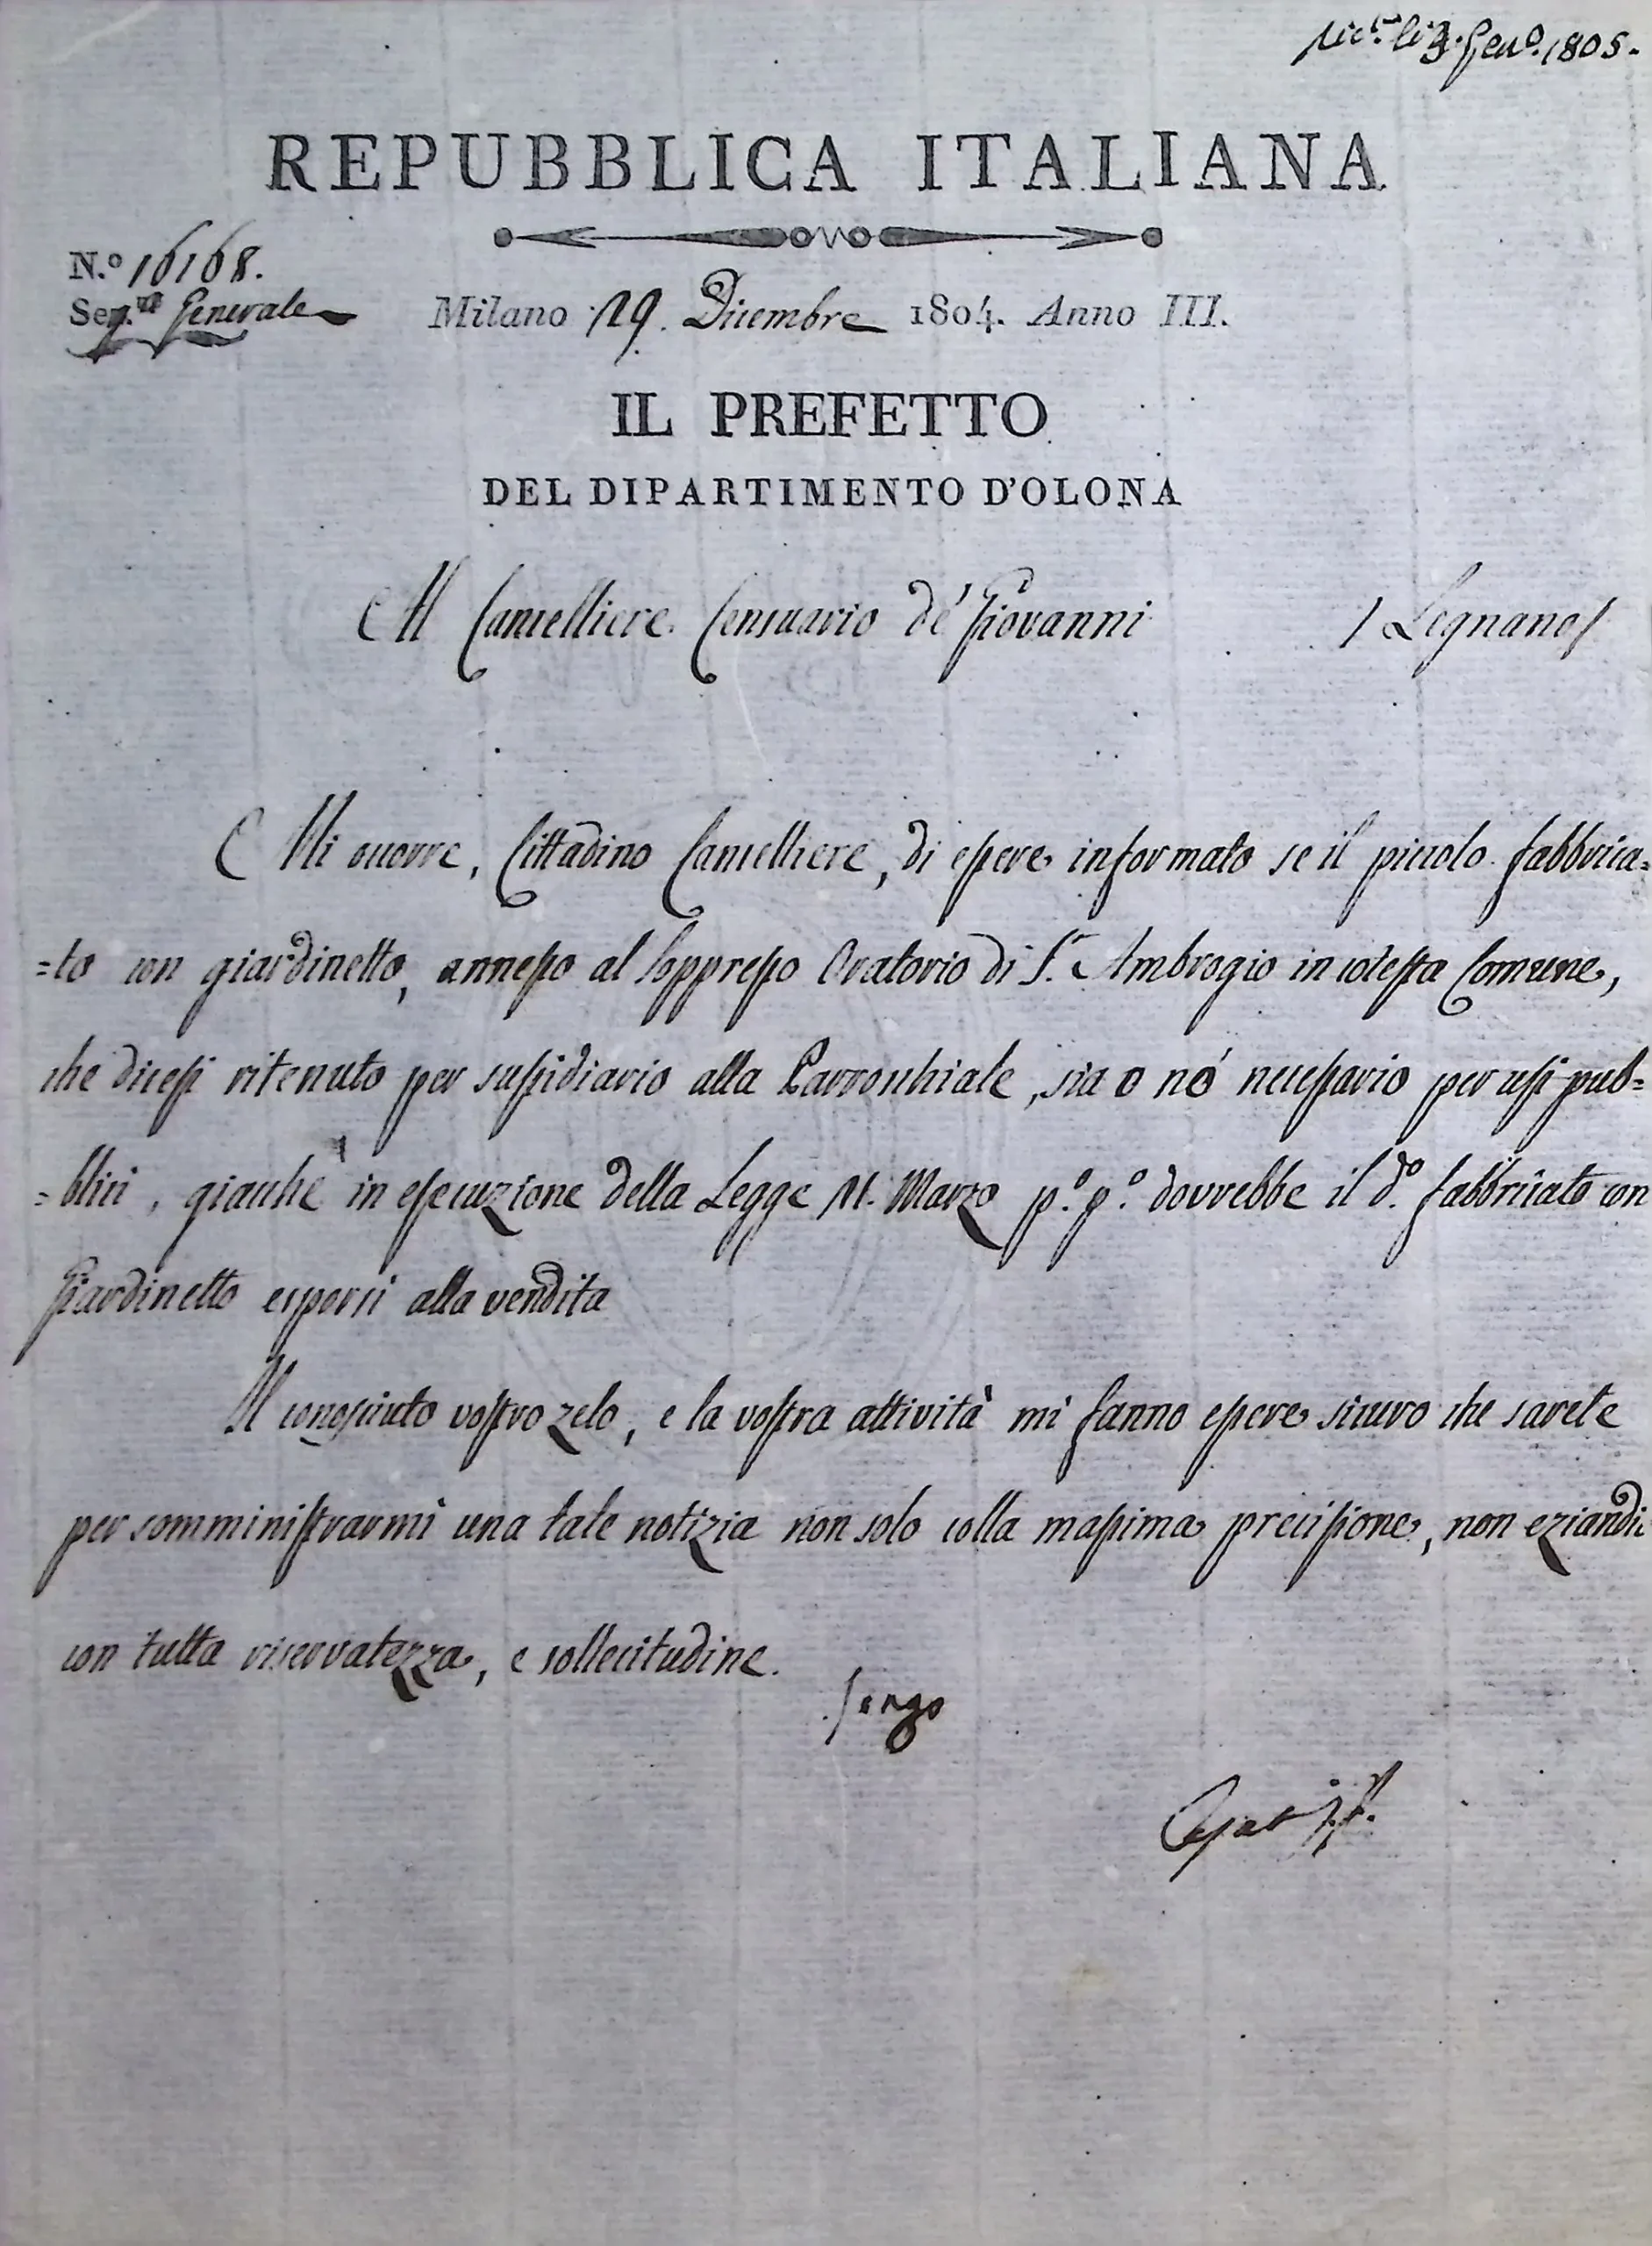 Ric.ta li 3. Gen.o 1805.
REPUBBLICA ITALIANA
N.o 16168.
Seg.ria Generale
Milano 29. Dicembre 1804. Anno III.
IL PREFETTO
DEL DIPARTIMENTO D'OLONA
Al Cancelliere Censuario de' Giovanni / Legnano /
Mi occorre, Cittadino Cancelliere, di essere informato se il piccolo fabbrica=
=to con giardinetto, annesso al soppresso Oratorio di S.t Ambrogio in cotesta Comune,
che dicesi ritenuto per sussidiario alla Parrocchiale, sia o nò necessario per usi pub=
=blici, giacchè in esecuzione della Legge 11. Marzo p.o p.o dovrebbe il d.o fabbricato con
Giardinetto esporsi alla vendita
Il conosciuto vostro zelo, e la vostra attività mi fanno essere sicuro che sarete
per somministrarmi una tale notizia non solo colla massima precisione, non eziandio
con tutta riservatezza, e sollecitudine.